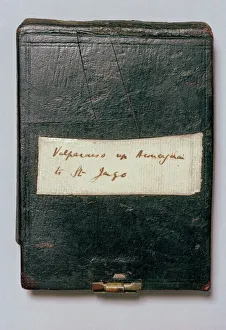 Valparaiso up Aconcagua
to St. Jago